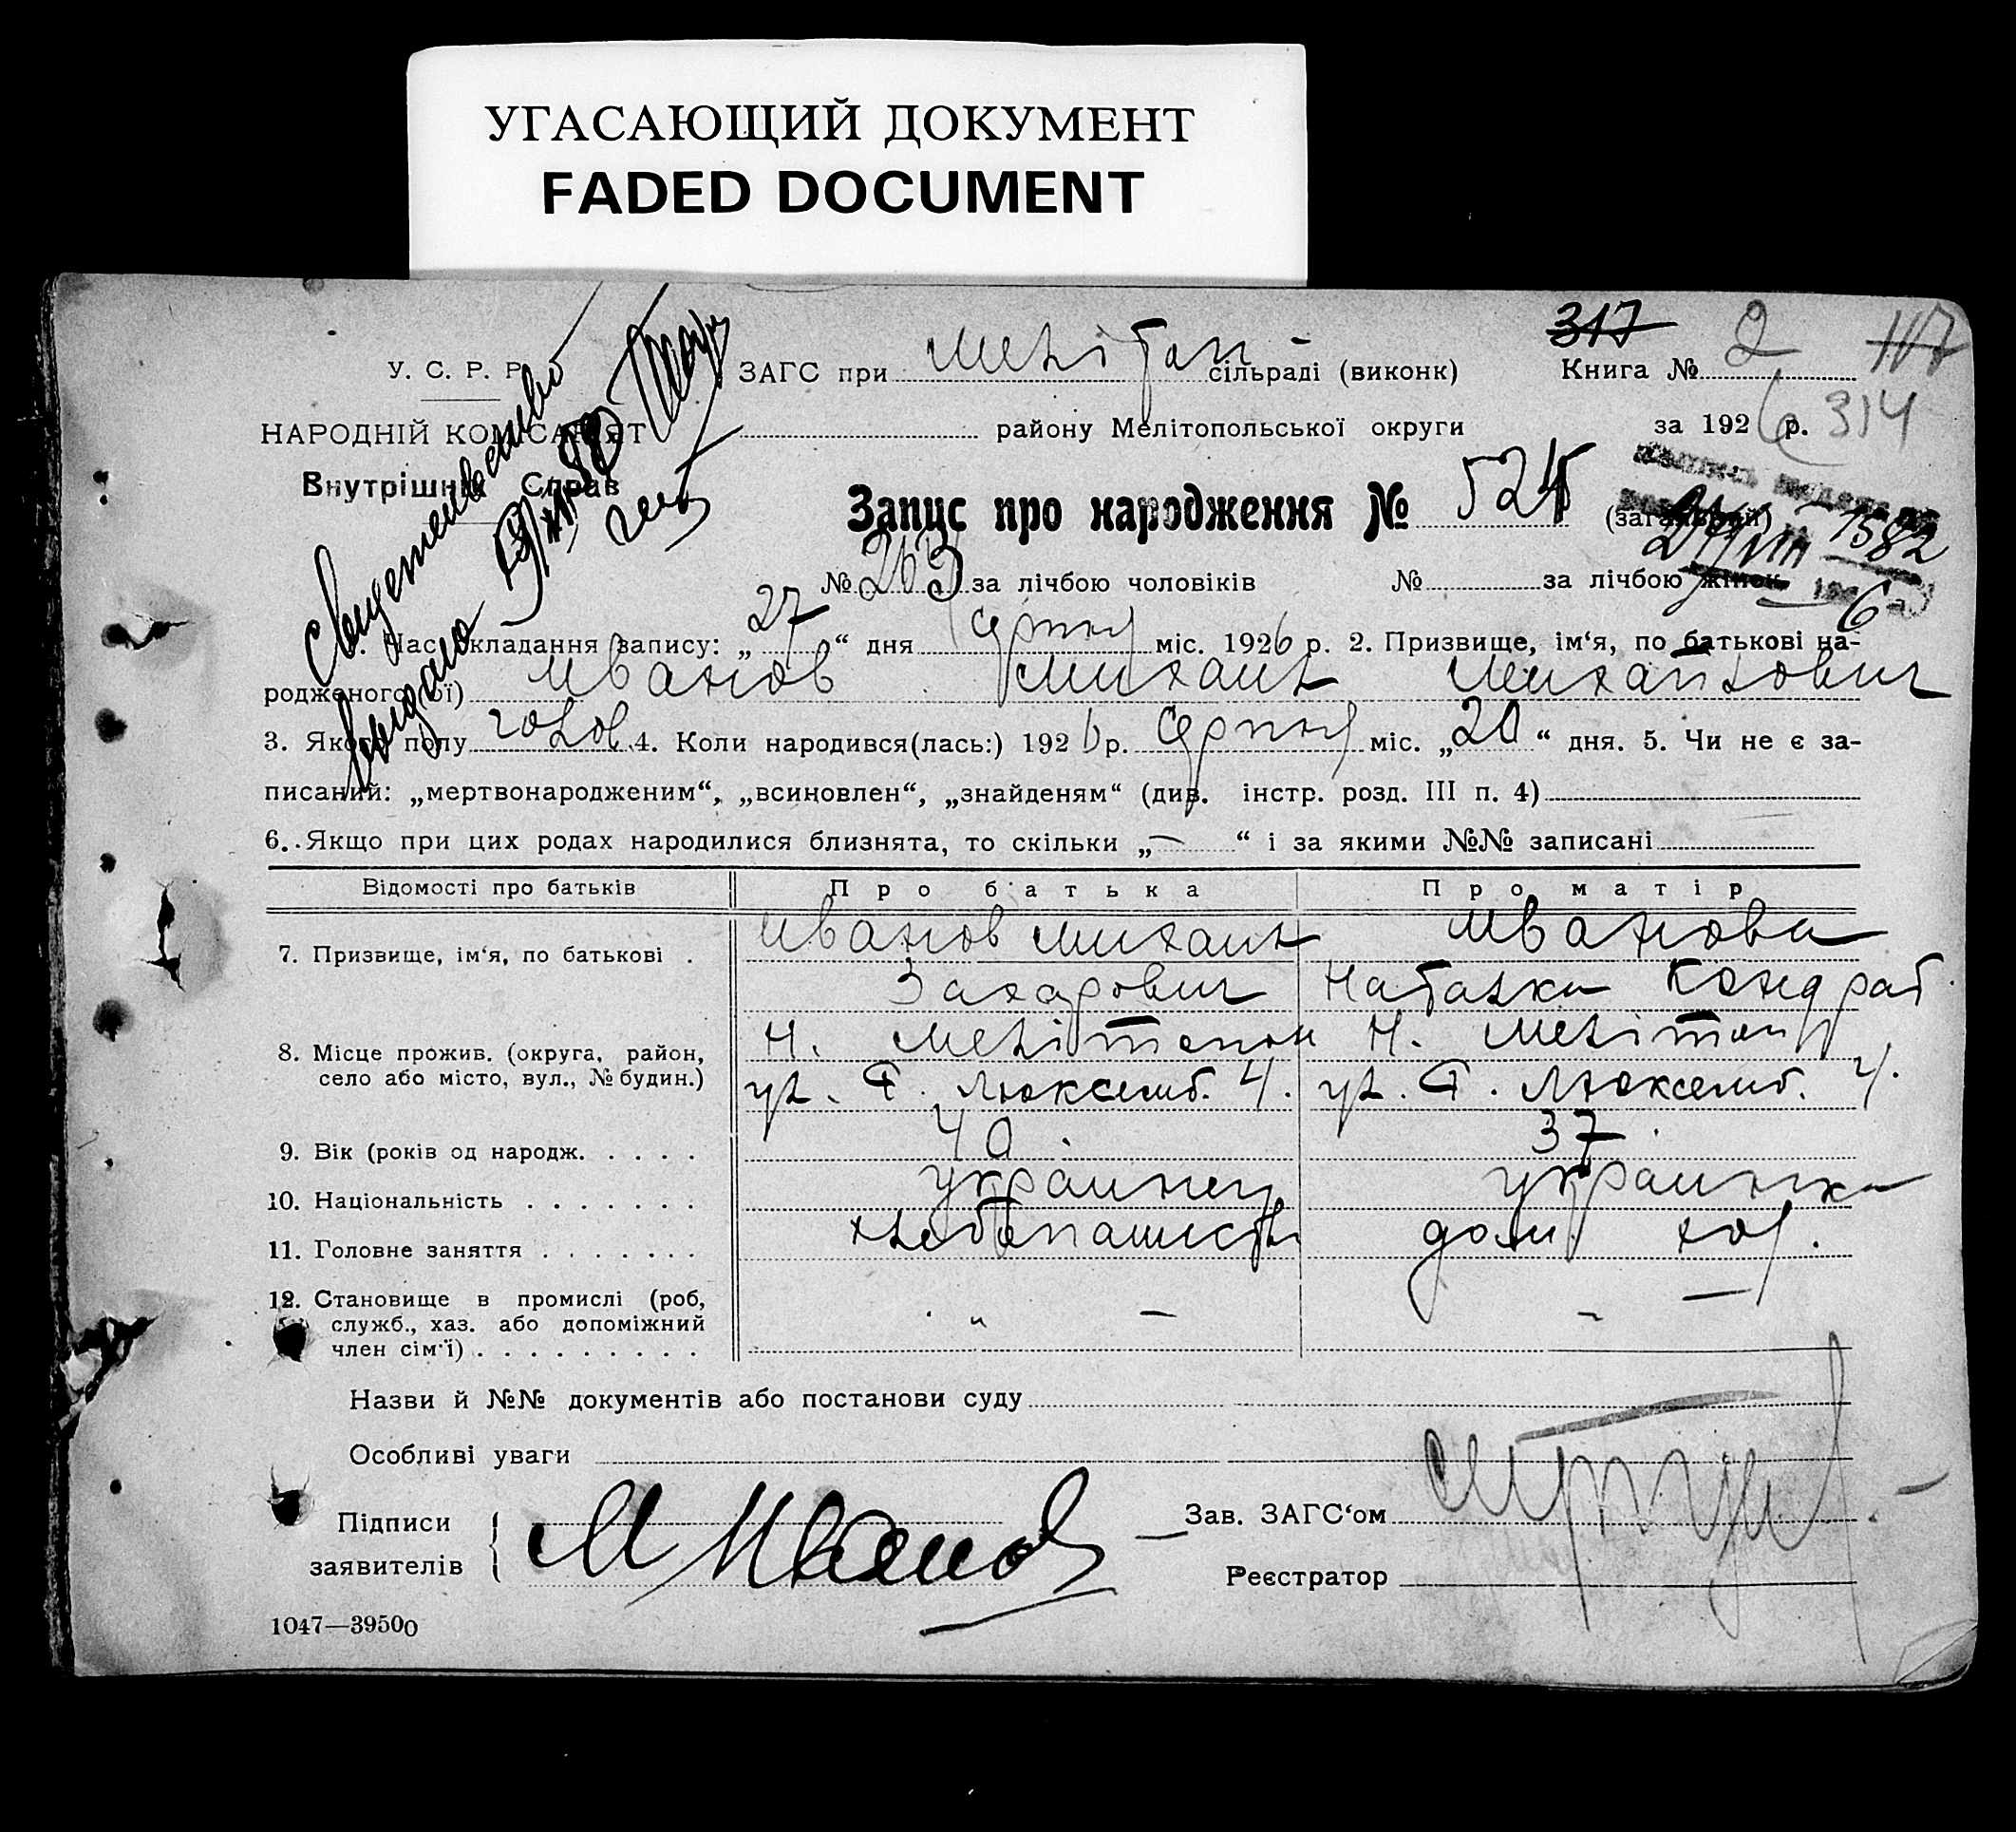 УГАСАЮЩИЙ ДОКУМЕНТ
FADED DOCUMENT
317 2 117
У. С. Р. Р. ЗАГС при Меліточ сільраді (виконк) Книга №
НАРОДНІЙ КОМІСАРІЯТ району Мелітопольської округи за 1926 р. 314
Внутрішніх Справ
Запис про народження № 524 (загальний)
27/VIII 1582
№ 263 за лічбою чоловіків № за лічбою жінок
Свидетельство
выдано
1. Час складання запису: „27“ дня серпня міс. 1926 р. 2. Призвище, ім‘я, по батькові на-
родженого(ої) Иванов Михаил Михайлович
3. Якого полу чолов. 4. Коли народився(лась:) 1926 р. серпня міс. „20“ дня. 5. Чи не є за-
писаний: „мертвонародженим“, „всиновлен“, „знайденям“ (див. інстр. розд. III п. 4)
6. Якщо при цих родах народилися близнята, то скільки „—“ і за якими №№ записані
Відомості про батьків Про батька Про матір
7. Призвище, ім‘я, по батькові . Иванов Михаил Иванова
Захарович Наталка Кондрат
8. Місце прожив. (округа, район, Н. Мелітополь Н. Мелітоп
село або місто, вул., № будин.) ул. Р. Люксемб. 4. ул. Р. Люксемб. 4.
9. Вік (років од народж. . . . . 40. 37.
10. Національність . . . . . . . украинец украинка
11. Головне заняття . . . . . . . хлебопашество дом. хоз.
12. Становище в промислі (роб, „ — —
служб., хаз. або допоміжний
член сім‘ї) . . . . . . . . .
Назви й №№ документів або постанови суду
Особливі уваги
Підписи Зав. ЗАГС‘ом
заявителів М Иванов Реєстратор
1047—39500